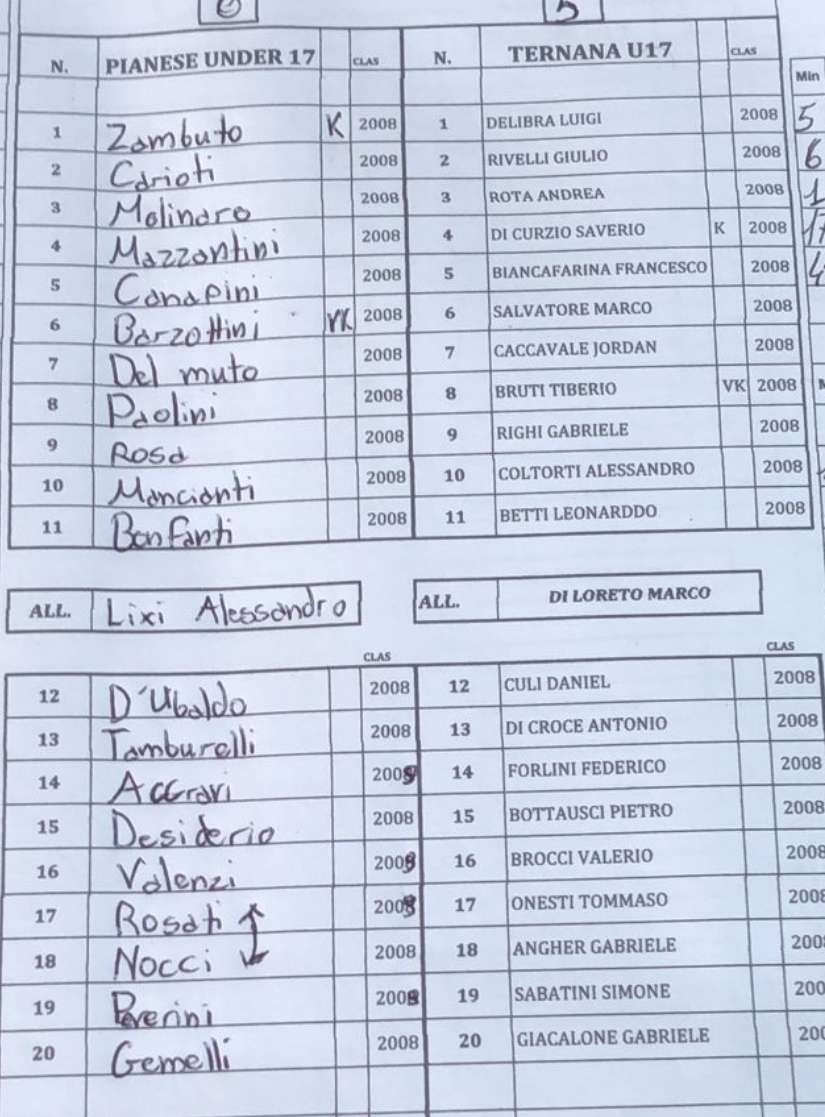 6 5
N. PIANESE UNDER 17 CLAS N. TERNANA U17 CLAS
Min
1 Zambuto K 2008 1 DELIBRA LUIGI 2008 5
2 Carioti 2008 2 RIVELLI GIULIO 2008 6
3 Molinaro 2008 3 ROTA ANDREA 2008 1
4 Mazzantini 2008 4 DI CURZIO SAVERIO K 2008
5 Canapini 2008 5 BIANCAFARINA FRANCESCO 2008 4
6 Barzottini VK 2008 6 SALVATORE MARCO 2008
7 Del muto 2008 7 CACCAVALE JORDAN 2008
8 Paolini 2008 8 BRUTI TIBERIO VK 2008
9 Rosa 2008 9 RIGHI GABRIELE 2008
10 Mancianti 2008 10 COLTORTI ALESSANDRO 2008
11 Bonfanti 2008 11 BETTI LEONARDDO 2008
ALL. Lixi Alessandro ALL. DI LORETO MARCO
CLAS CLAS
12 D'Ubaldo 2008 12 CULI DANIEL 2008
13 Tamburelli 2008 13 DI CROCE ANTONIO 2008
14 Accravi 2009 14 FORLINI FEDERICO 2008
15 Desiderio 2008 15 BOTTAUSCI PIETRO 2008
16 Valenzi 2009 16 BROCCI VALERIO 2008
17 Rosati 2009 17 ONESTI TOMMASO 2008
18 Nocci 2008 18 ANGHER GABRIELE 200
19 2009 19 SABATINI SIMONE 200
20 Gemelli 2008 20 GIACALONE GABRIELE 200